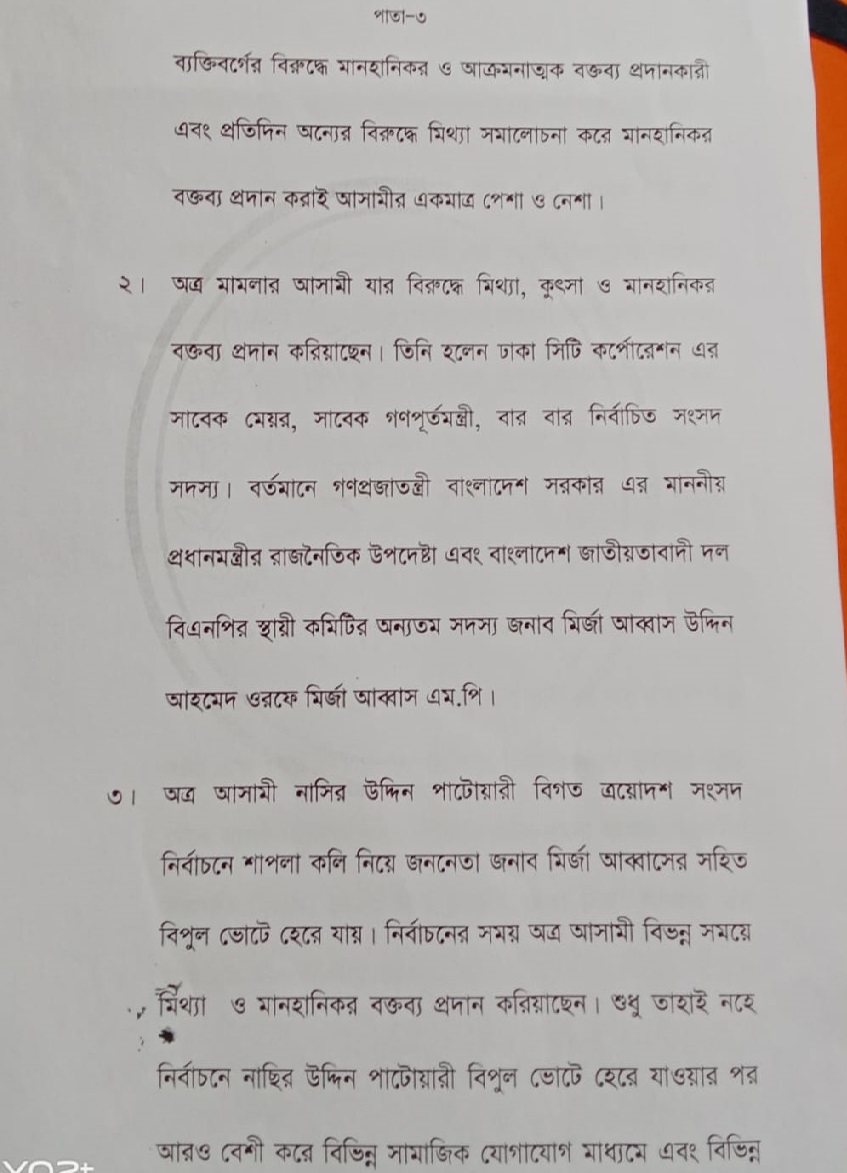 পাতা-৩
ব্যক্তিবর্গের বিরুদ্ধে মানহানিকর ও আক্রমনাত্মক বক্তব্য প্রদানকারী
এবং প্রতিদিন অন্যের বিরুদ্ধে মিথ্যা সমালোচনা করে মানহানিকর
বক্তব্য প্রদান করাই আসামীর একমাত্র পেশা ও নেশা।
২। অত্র মামলার আসামী যার বিরুদ্ধে মিথ্যা, কুৎসা ও মানহানিকর
বক্তব্য প্রদান করিয়াছেন। তিনি হলেন ঢাকা সিটি কর্পোরেশন এর
সাবেক মেয়র, সাবেক গণপূর্তমন্ত্রী, বার বার নির্বাচিত সংসদ
সদস্য। বর্তমানে গণপ্রজাতন্ত্রী বাংলাদেশ সরকার এর মাননীয়
প্রধানমন্ত্রীর রাজনৈতিক উপদেষ্টা এবং বাংলাদেশ জাতীয়তাবাদী দল
বিএনপির স্থায়ী কমিটির অন্যতম সদস্য জনাব মির্জা আব্বাস উদ্দিন
আহমেদ ওরফে মির্জা আব্বাস এম.পি।
৩। অত্র আসামী নাসির উদ্দিন পাটোয়ারী বিগত ত্রয়োদশ সংসদ
নির্বাচনে শাপলা কলি নিয়ে জননেতা জনাব মির্জা আব্বাসের সহিত
বিপুল ভোটে হেরে যায়। নির্বাচনের সময় অত্র আসামী বিভন্ন সময়ে
মিথ্যা ও মানহানিকর বক্তব্য প্রদান করিয়াছেন। শুধু তাহাই নহে
নির্বাচনে নাছির উদ্দিন পাটোয়ারী বিপুল ভোটে হেরে যাওয়ার পর
আরও বেশী করে বিভিন্ন সামাজিক যোগাযোগ মাধ্যমে এবং বিভিন্ন